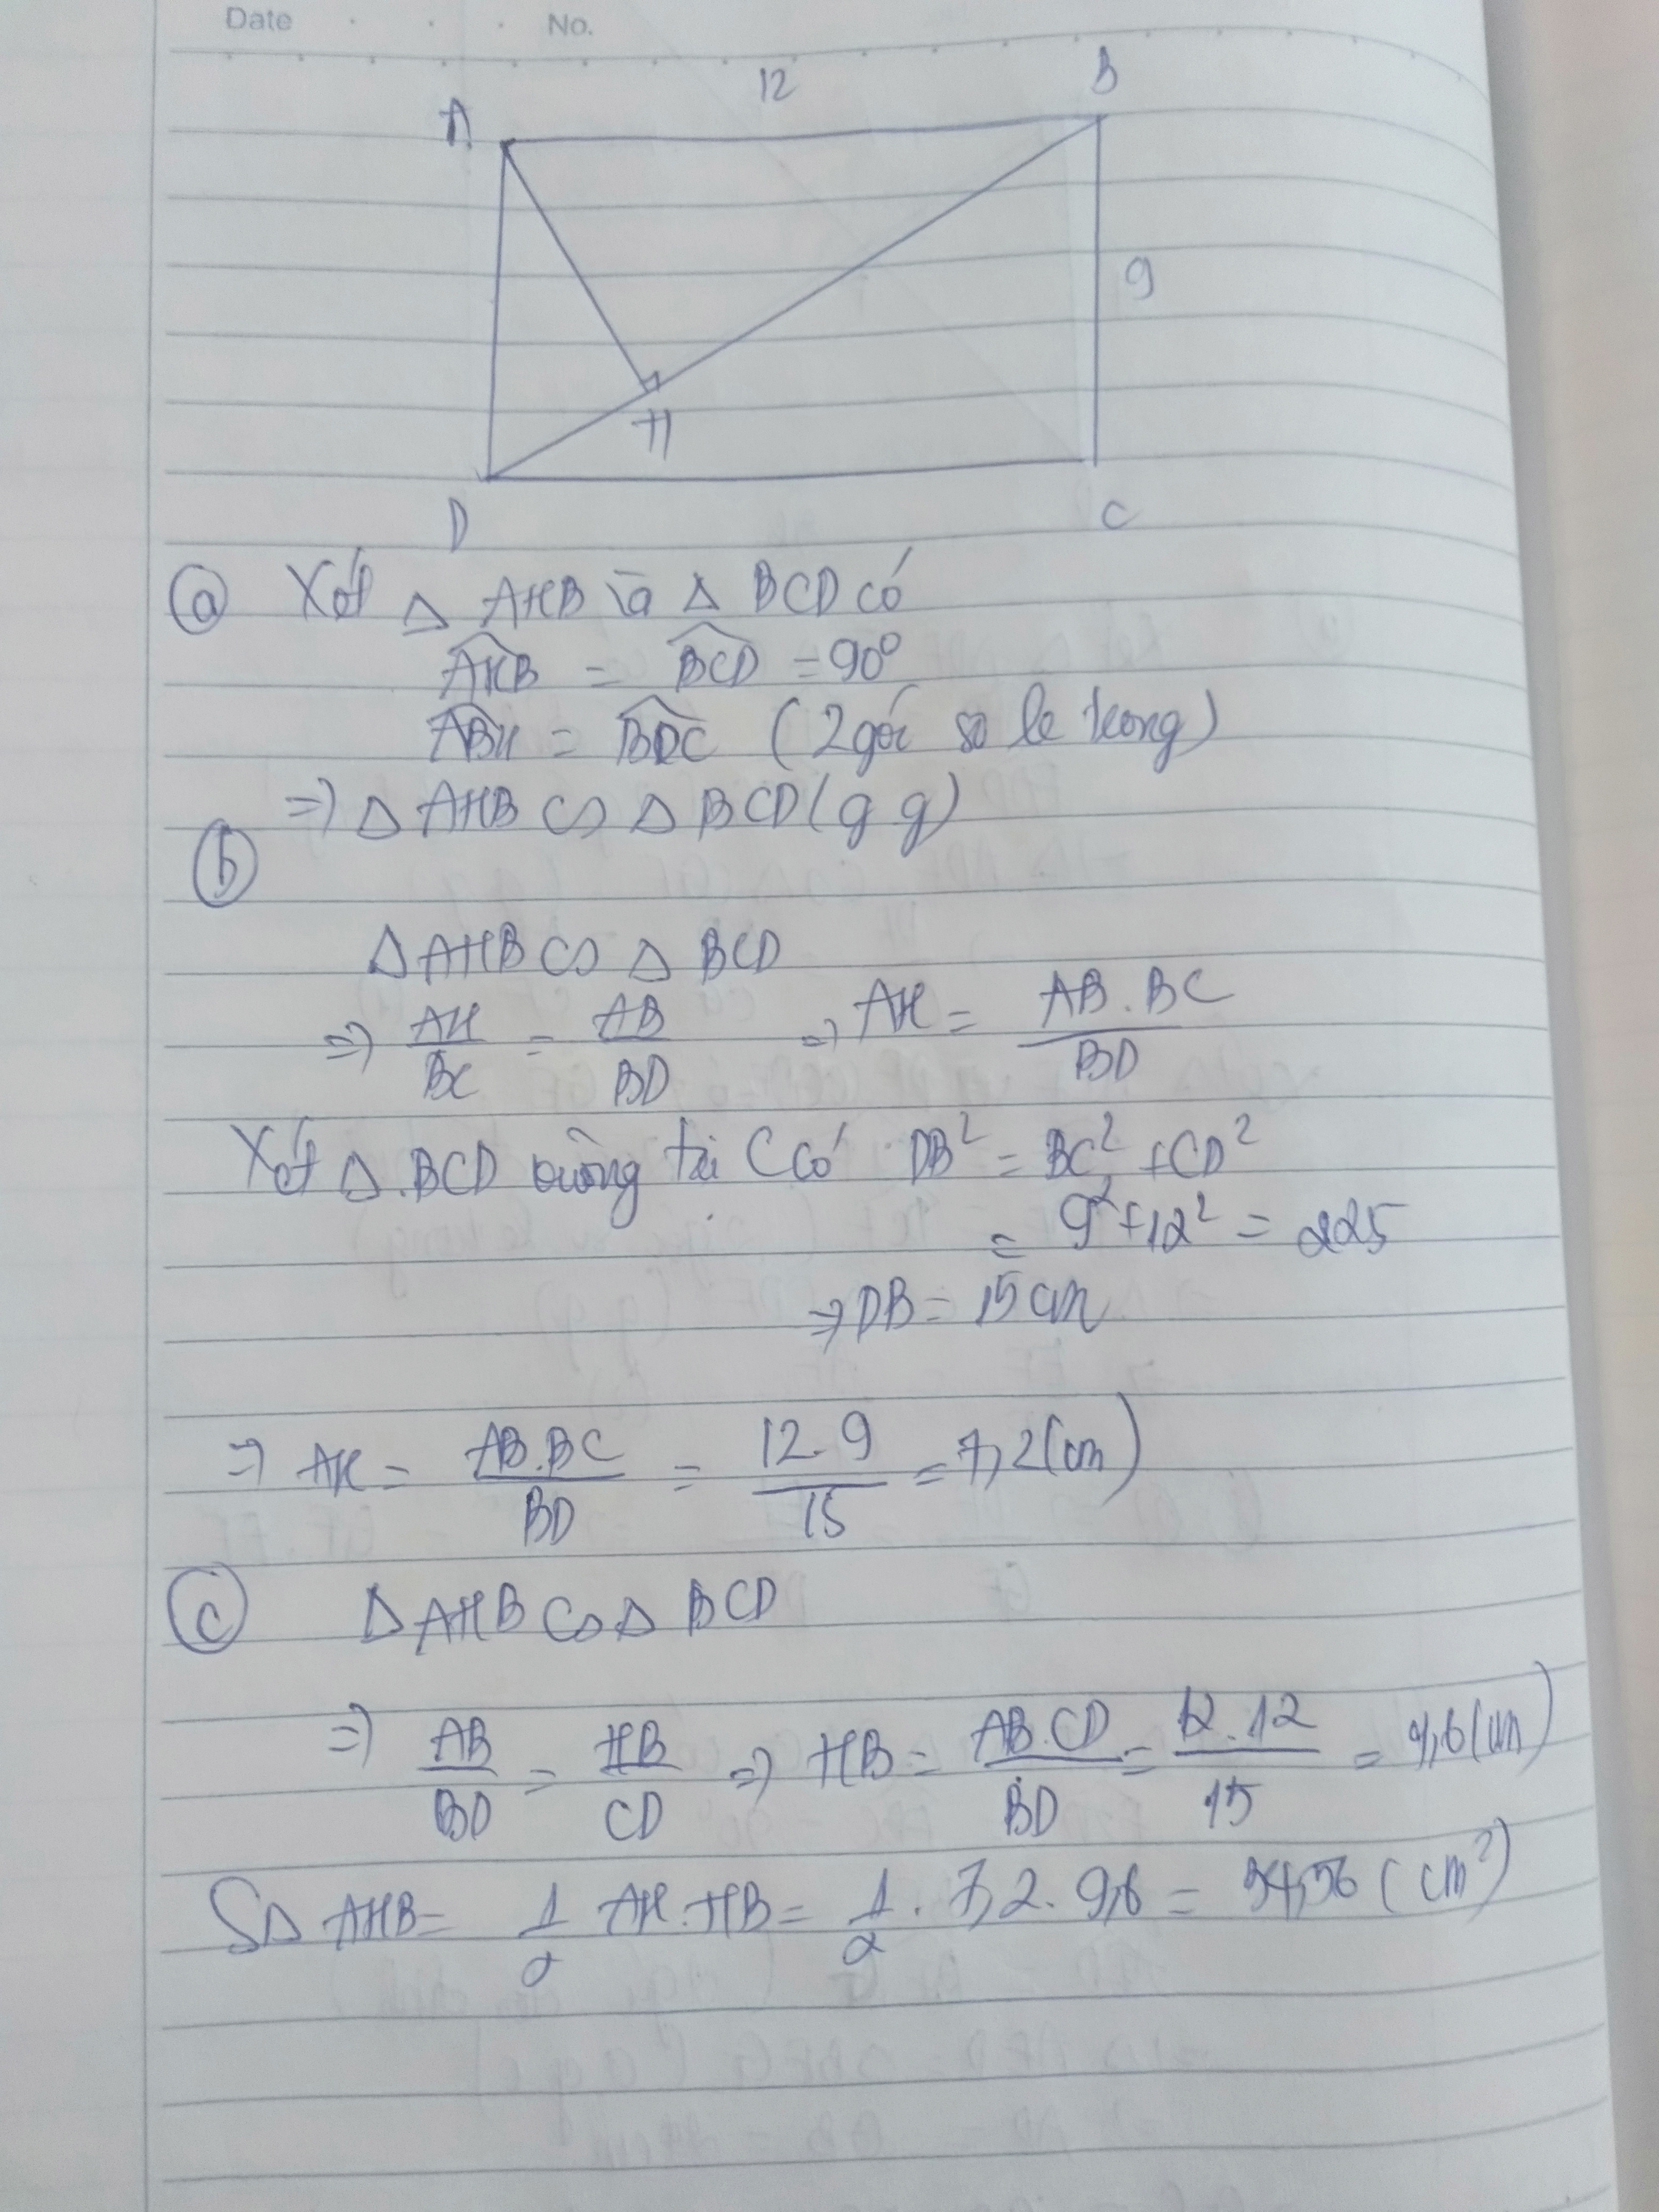 Date No.
12
A B
9
H
D C
ⓐ Xét △ AHB và △ BCD có
\widehat{AHB} = \widehat{BCD} = 90⁰
\widehat{ABH} = \widehat{BDC} (2 góc so le trong)
=> △ AHB ∽ △ BCD (g.g)
ⓑ
△ AHB ∽ △ BCD
=> AH/BC = AB/BD => AH = AB.BC/BD
Xét △.BCD vuông tại C có DB² = BC² + CD²
= 9² + 12² = 225
=> DB = 15 cm
=> AH = AB.BC/BD = 12.9/15 = 7,2 (cm)
ⓒ △ AHB ∽ △ BCD
=> AB/BD = HB/CD => HB = AB.CD/BD = 12.12/15 = 9,6 (cm)
S△ AHB = 1/2 AH.HB = 1/2 . 7,2 . 9,6 = 34,56 (cm²)